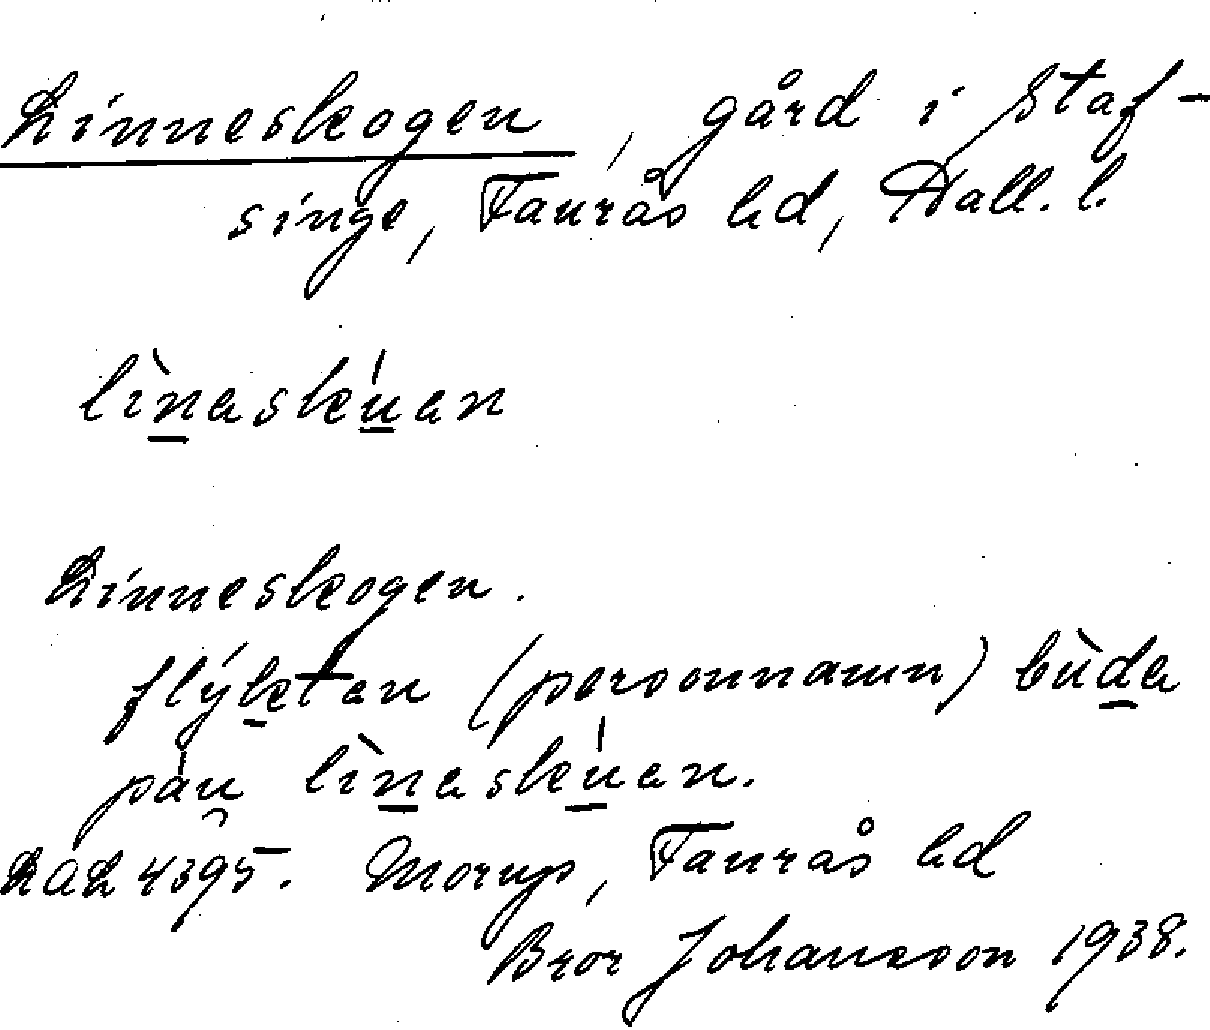 Linneskogen, gård i Staf-
singe, Faurås hd, Hall. l.
lìnaskúan
Linneskogen.
flýktan (personnamn) bùda
páu lìnaskúan.
LAL 4395. Morup, Faurås hd
Bror Johansson 1938.